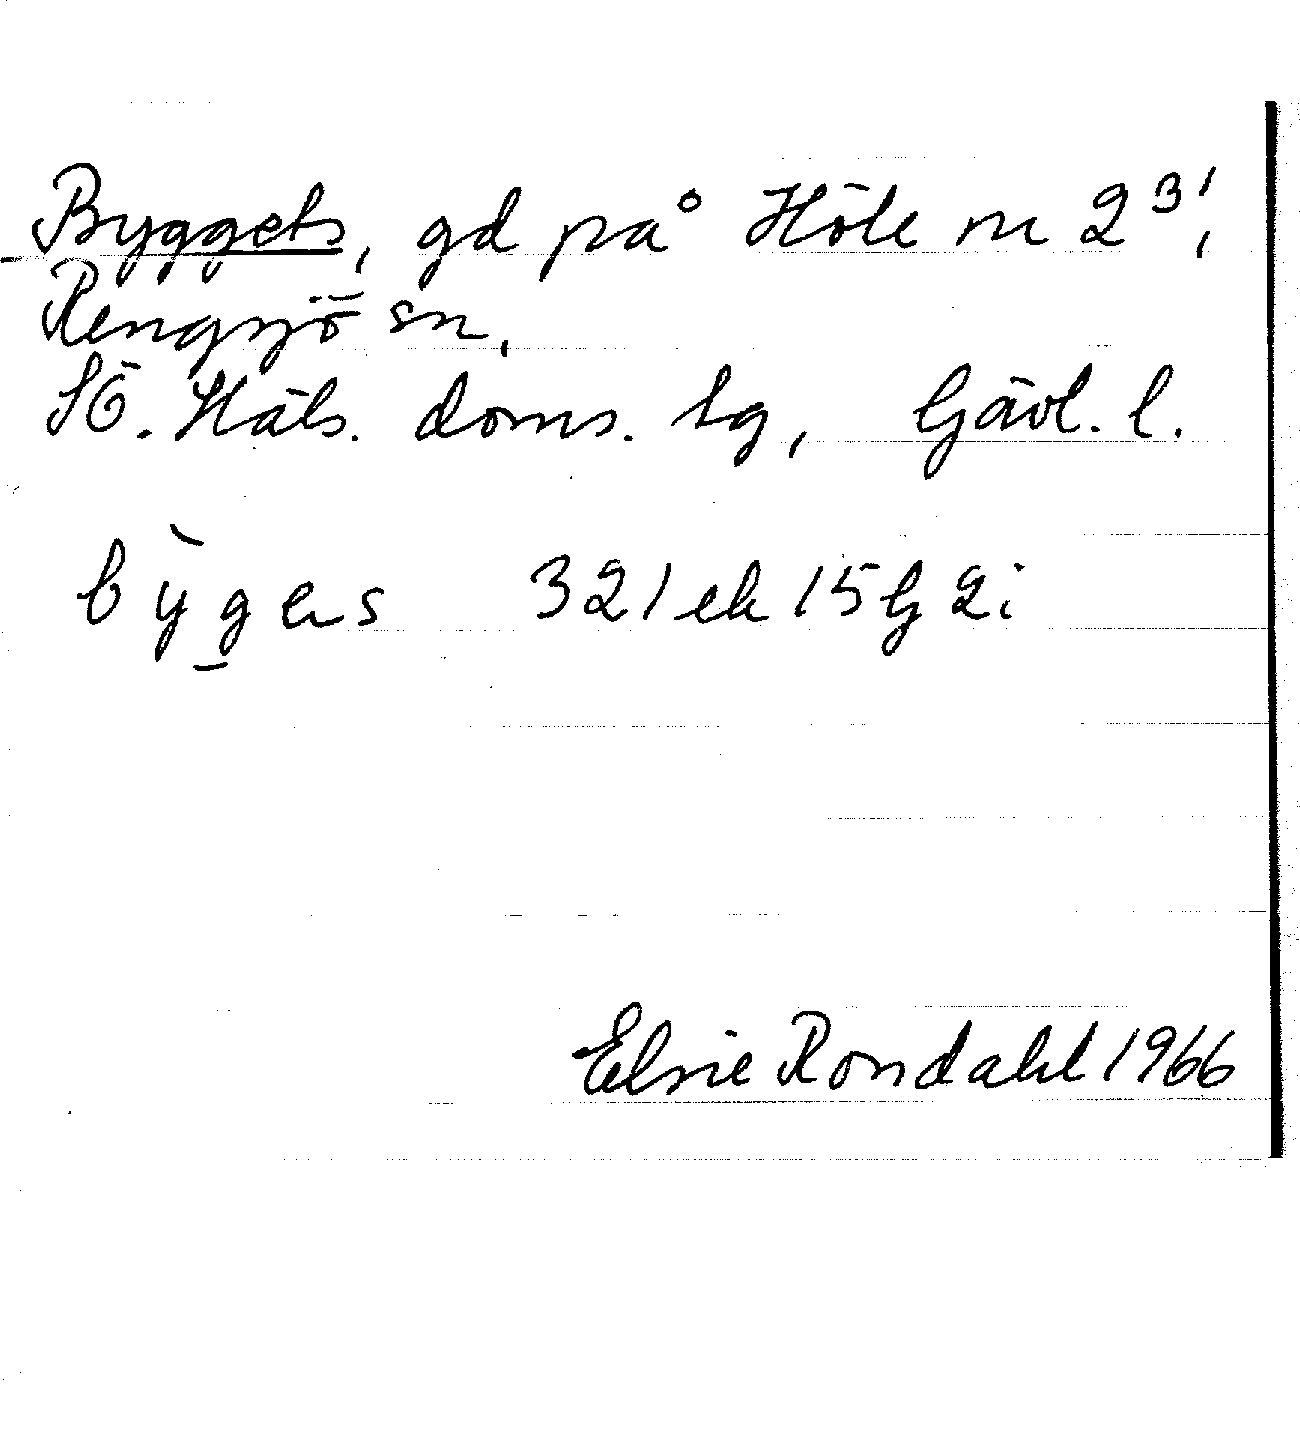 Byggets, gd på Höle nr 2³¹,
Rengsjö sn,
SÖ. Häls. doms. tg, Gävl. l.
bỳg̲es 321 ek 15 G 2i
Elsie Rondahl 1966